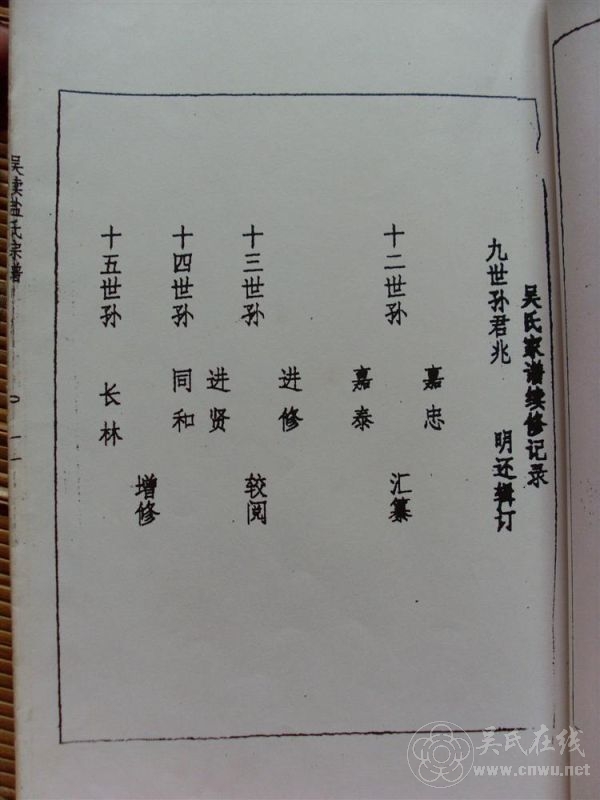 吴氏家谱续修记录
九世孙君兆 明还辑订
十二世孙 嘉忠 嘉泰 汇纂
十三世孙 进修 进贤 较阅
十四世孙 同和
十五世孙 长林 增修
吴卖盐氏宗谱
吴氏在线
www.cnwu.net